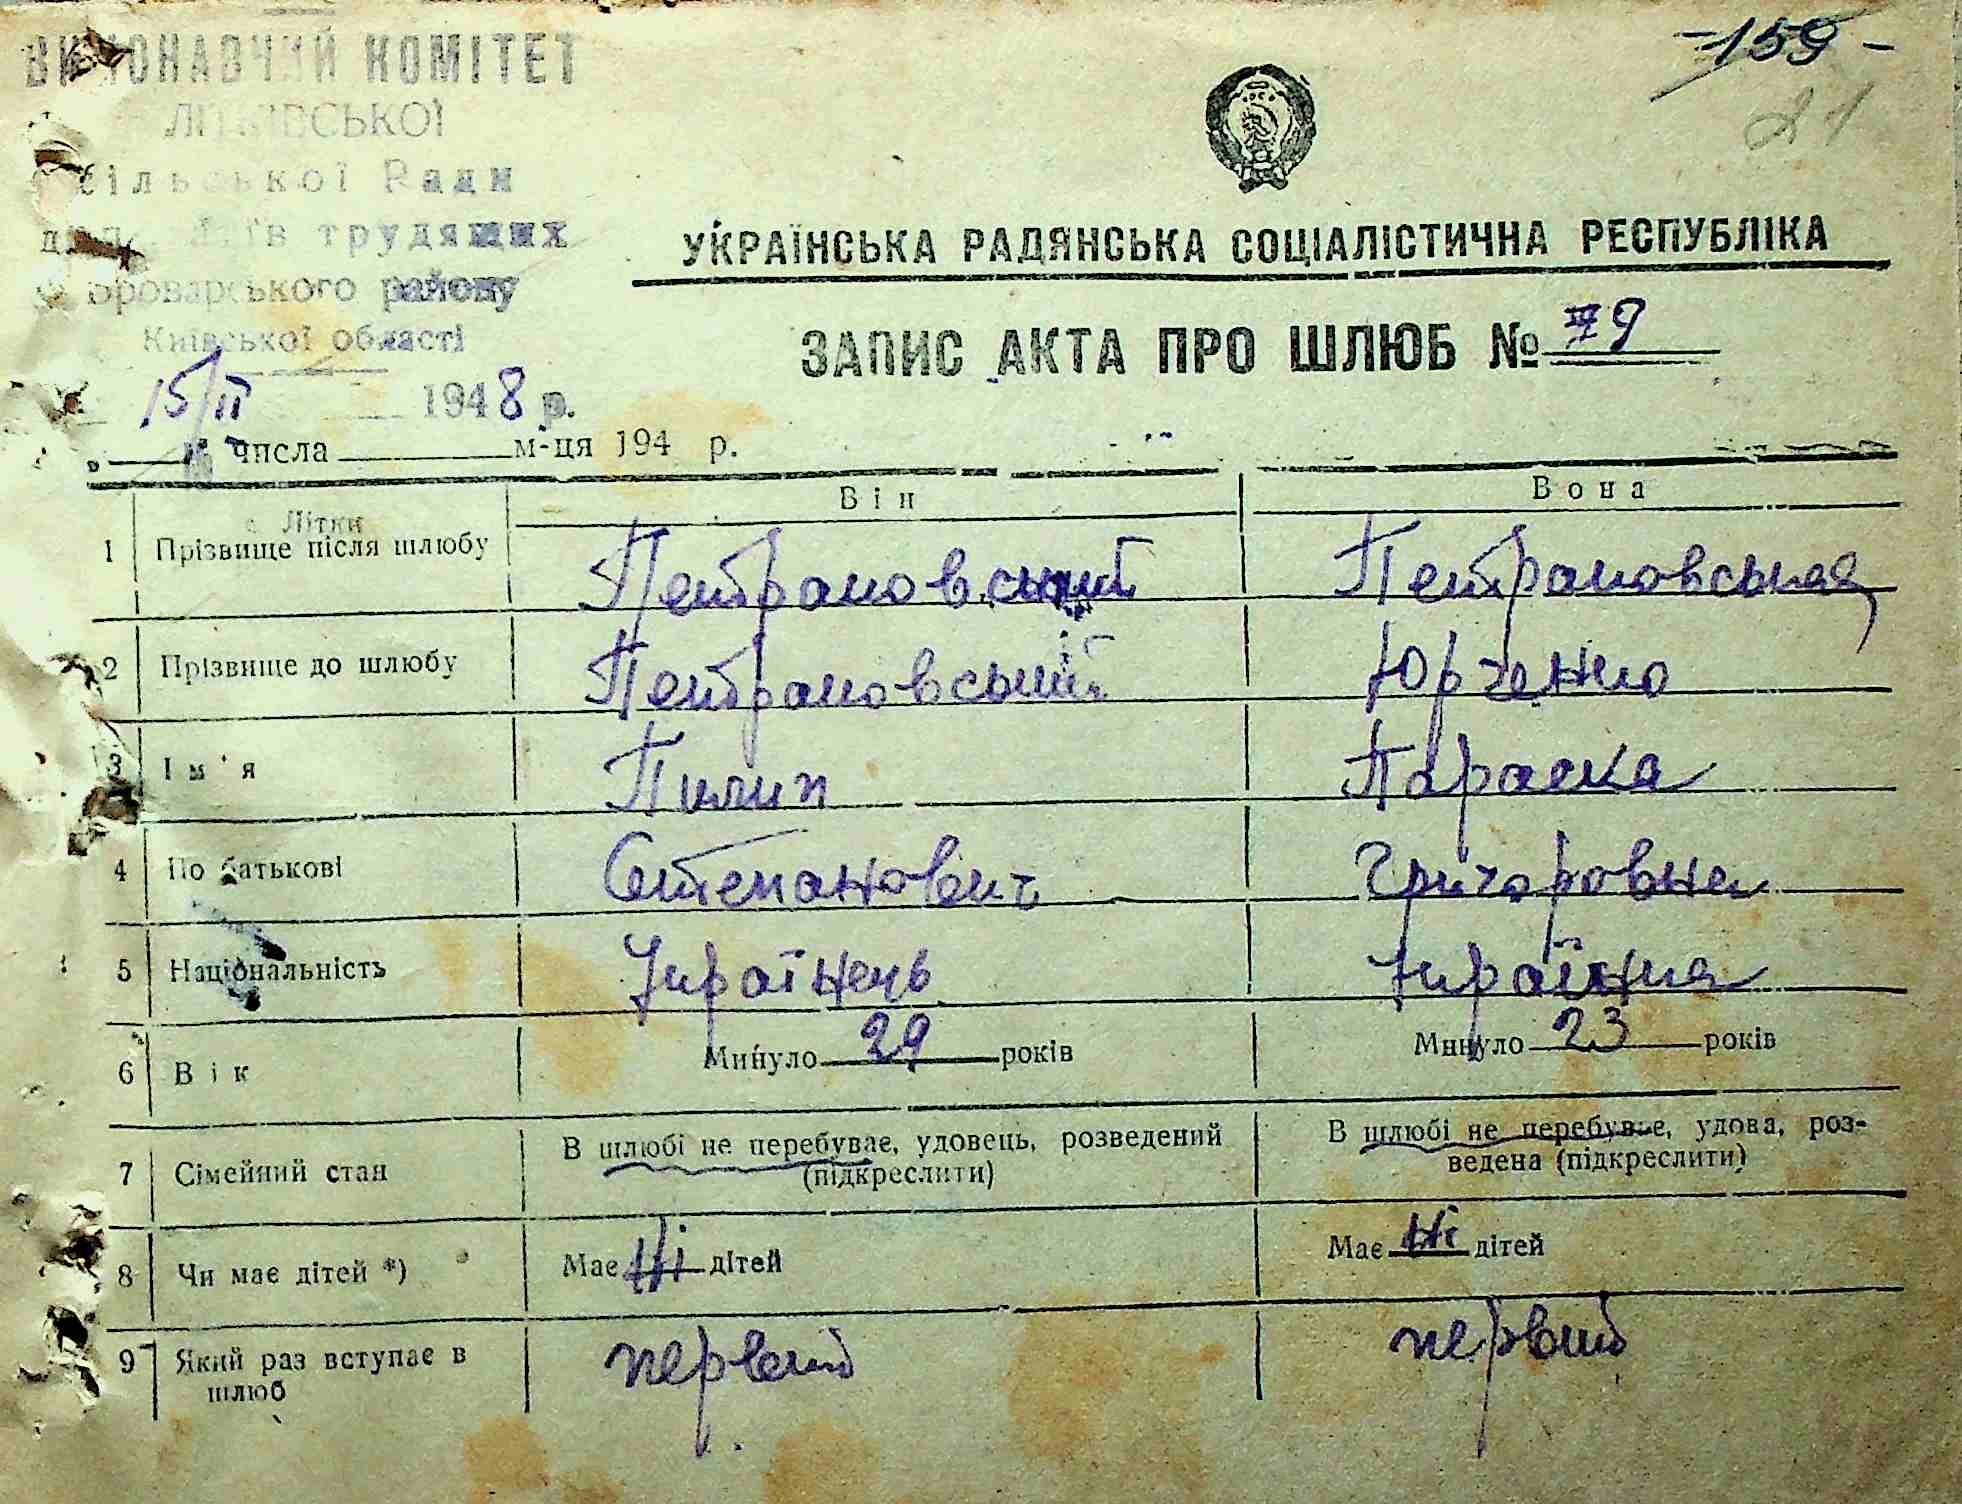 -159-
21
ВИКОНАВЧИЙ КОМІТЕТ
ЛІТКІВСЬКОЇ
сільської Ради
деп. трудящих
Броварського району
Київської області
15/ІІ 1948 р.
с. Літки
УКРАЇНСЬКА РАДЯНСЬКА СОЦІАЛІСТИЧНА РЕСПУБЛІКА
ЗАПИС АКТА ПРО ШЛЮБ № 9
" числа м-ця 194 р.
Він Вона
1 Прізвище після шлюбу Петрановський Петрановськая
2 Прізвище до шлюбу Петрановський Юрченко
3 Ім'я Пилип Параска
4 По батькові Степанович Григоровна
5 Національність Українець Українка
6 Вік Минуло 29 років Минуло 23 років
7 Сімейний стан В шлюбі не перебуває, удовець, розведений (підкреслити) В шлюбі не перебуває, удова, роз-
ведена (підкреслити)
8 Чи має дітей *) Має Ні дітей Має Ні дітей
9 Який раз вступає в первий первий
шлюб